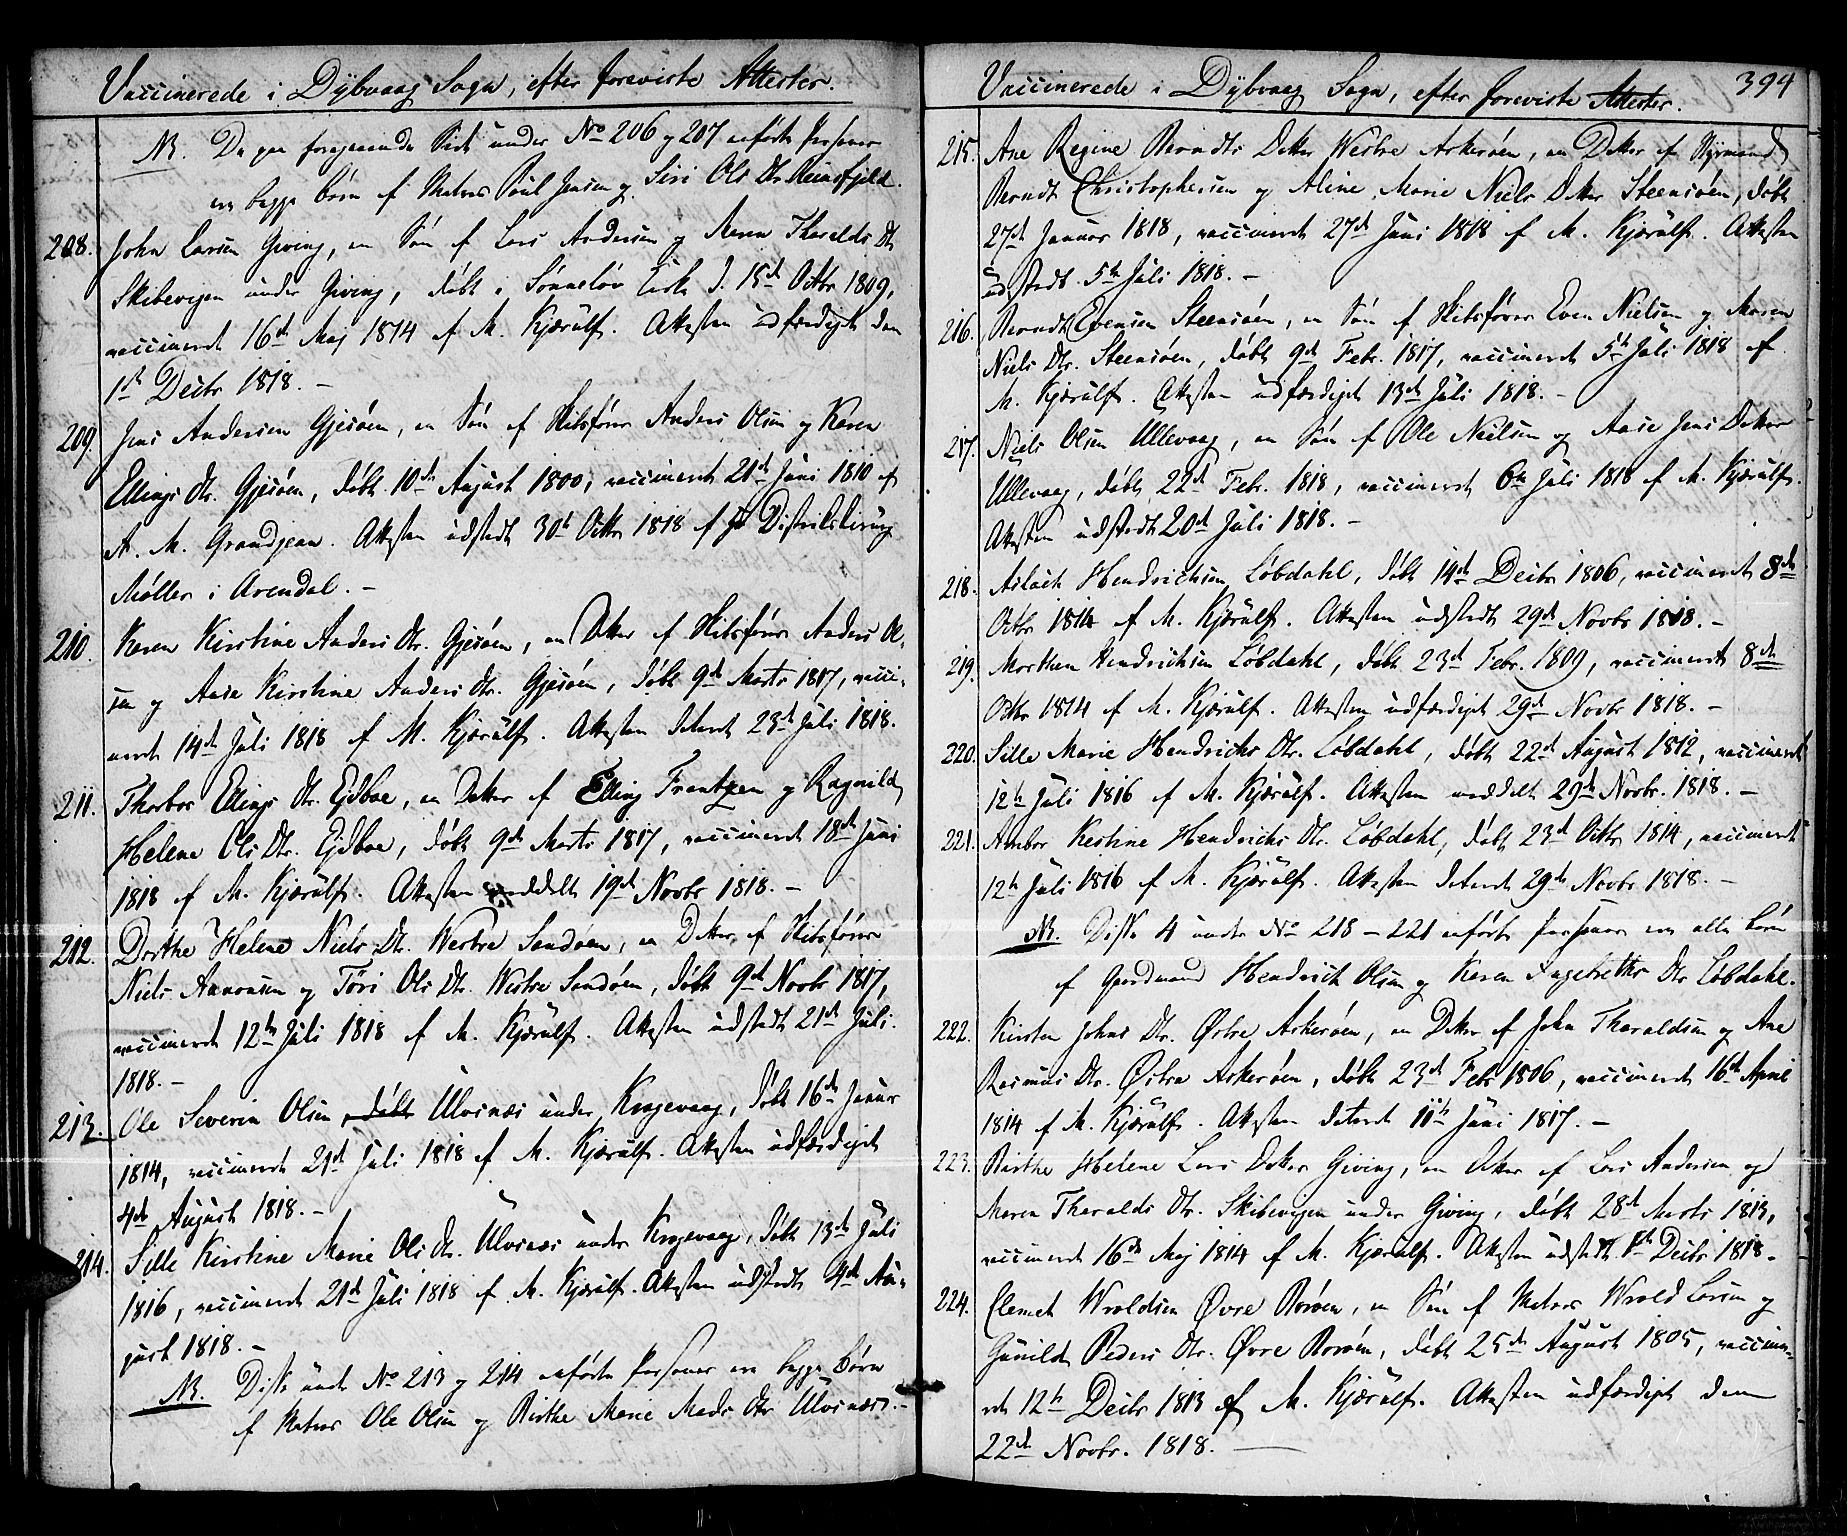 Vaccinerede i Dÿbvaag Sogn, efter foreviste Attester.
NB. De paa foregaaende Side under No 206 og 207 anförte Personer
ere begge börn af Matros Poul Jensen og Siri Ols Dtr Reinsfjeld.
208. John Larsen Giving, en Sön af Lars Andersen og Maren Tharalds Dtr
Skibevigen under Giving, döbt i Sönnelöv Kirke d. 15de Octbr 1809,
vaccineret 16de Maj 1814 af M. Kjærülf. Attesten udfærdiget den
1ste Decbr 1818. –
209. Jens Andersen Gjesöen, en Sön af Skibsförer Anders Olsen og Karen
Ellings Dtr. Gjesöen, döbt 10de August 1800, vaccineret 21de Juni 1810 af
A. M. Grandjean. Attesten udstedt 30te Octbr 1818 af Districtschirurg
Möller i Arendal. –
210. Karen Kirstine Anders Dtr. Gjesöen, en Datter af Skibsförer Anders Ol-
sen og Aase Kirstine Anders Dtr. Gjesöen, döbt 9de Marts 1817, vacci-
neret 14de Juli 1818 af M. Kjærülf. Attesten dateret 23de Juli 1818.
211. Thorbor Ellings Dtr. Ejdboe, en Datter af Elling Frantzen og Ragnild
Helene Ols Dtr. Ejdboe, döbt 9de Marts 1817, vaccineret 18de Juni
1818 af M. Kjærülf. Attesten meddelt 19de Novbr 1818. –
212. Dorthe Helene Niels Dt. Westre Sandöen, en Datter af Skibsförer
Niels Aanonsen og Töri Ols Dtr. Westre Sandöen, döbt 9de Novbr 1817,
vaccineret 12te Juli 1818 af M. Kjærülf. Attesten udstedt 21de Juli
1818. –
213. Ole Severin Olsen döbt Ulvenæs under Krogevaag, döbt 16de Januar
1814, vaccineret 21de Juli 1818 af M. Kjærülf. Attesten udfærdiget
4de August 1818. –
214. Sille Kirstine Marie Ols Dtr. Ulvenæs under Krogevaag, döbt 13de Juli
1816, vaccineret 21de Juli 1818 af M. Kjærülf. Attesten udstedt 4de Au-
gust 1818. –
NB. Disse under No 213 og 214 anförte Personer ere begge börn
af Matros Ole Olsen og Birthe Marie Mads Dtr Ulvenæs. –
Vaccinerede i Dÿbvaag Sogn, efter foreviste Attester. 394
215. Ane Regine Berndts Datter Westre Askeröen, en Datter af Styrmand
Berndt Christophersen og Aline Marie Niels Datter Steensöen, döbt
27de Januar 1818, vaccineret 27de Juni 1818 af M. Kjærülf. Attesten
udstedt 5te Juli 1818. –
216. Berndt Evensen Steensöen, en Sön af Skibsförer Even Nielsen og Maren
Niels Dtr. Steensöen, döbt 9de Febr. 1817, vaccineret 5te Juli 1818 af
M. Kjærülf. Attesten udfærdiget 13de Juli 1818. –
217. Niels Olsen Ullevaag, en Sön af Ole Nielsen og Aase Jens Datter
Ullevaag, döbt 22de Febr. 1818, vaccineret 6te Juli 1818 af M. Kjærülf.
Attesten udstedt 20de Juli 1818. –
218. Aslach Hendrichsen Löbdahl, döbt 14de Decbr 1806, vaccineret 8de
Octbr 1814 af M. Kjærülf. Attesten udstedt 29de Novbr 1818. –
219. Morthen Hendrichsen Löbdahl, döbt 23de Febr. 1809, vaccineret 8de
Octbr 1814 af M. Kjærülf. Attesten udfærdiget 29de Novbr 1818. –
220. Sille Marie Hendrichs Dtr. Löbdahl, döbt 22de August 1812, vaccineret
12te Juli 1816 af M. Kjærülf. Attesten meddelt 29de Novbr. 1818. –
221. Anbor Kestine Hendrichs Dtr. Löbdahl, döbt 23de Octbr 1814, vaccineret
12te Juli 1816 af M. Kjærülf. Attesten dateret 29de Novbr 1818. –
NB. Disse 4 under No 218 – 221 anförte Personer ere alle börn
af Gaardmand Hendrich Olsen og Karen Ingebreths Dtr Löbdahl.
222. Kirsten Johns Dtr. Östre Askeröen, en Datter af John Tharaldsen og Ane
Rasmus Dtr. Östre Askeröen, döbt 23de Febr 1806, vaccineret 16de April
1814 af M. Kjærülf. Attesten dateret 11te Juni 1817. –
223. Birthe Helene Lars Datter Giving, en Datter af Lars Andersen og
Maren Tharalds Dtr. Skibevigen under Giving, döbt 28de Marts 1813,
vaccineret 16de Maj 1814 af M. Kjærülf. Attesten udstedt 1ste Decbr 1818. –
224. Clemet Wroldsen Övre Boröen, en Sön af Matros Wrold Larsen og
Gunild Peders Dtr. Övre Boröen, döbt 25de August 1805, vaccine-
ret 12te Decbr 1813 af M. Kjærülf. Attesten udfærdiget den
22de Novbr. 1818. –